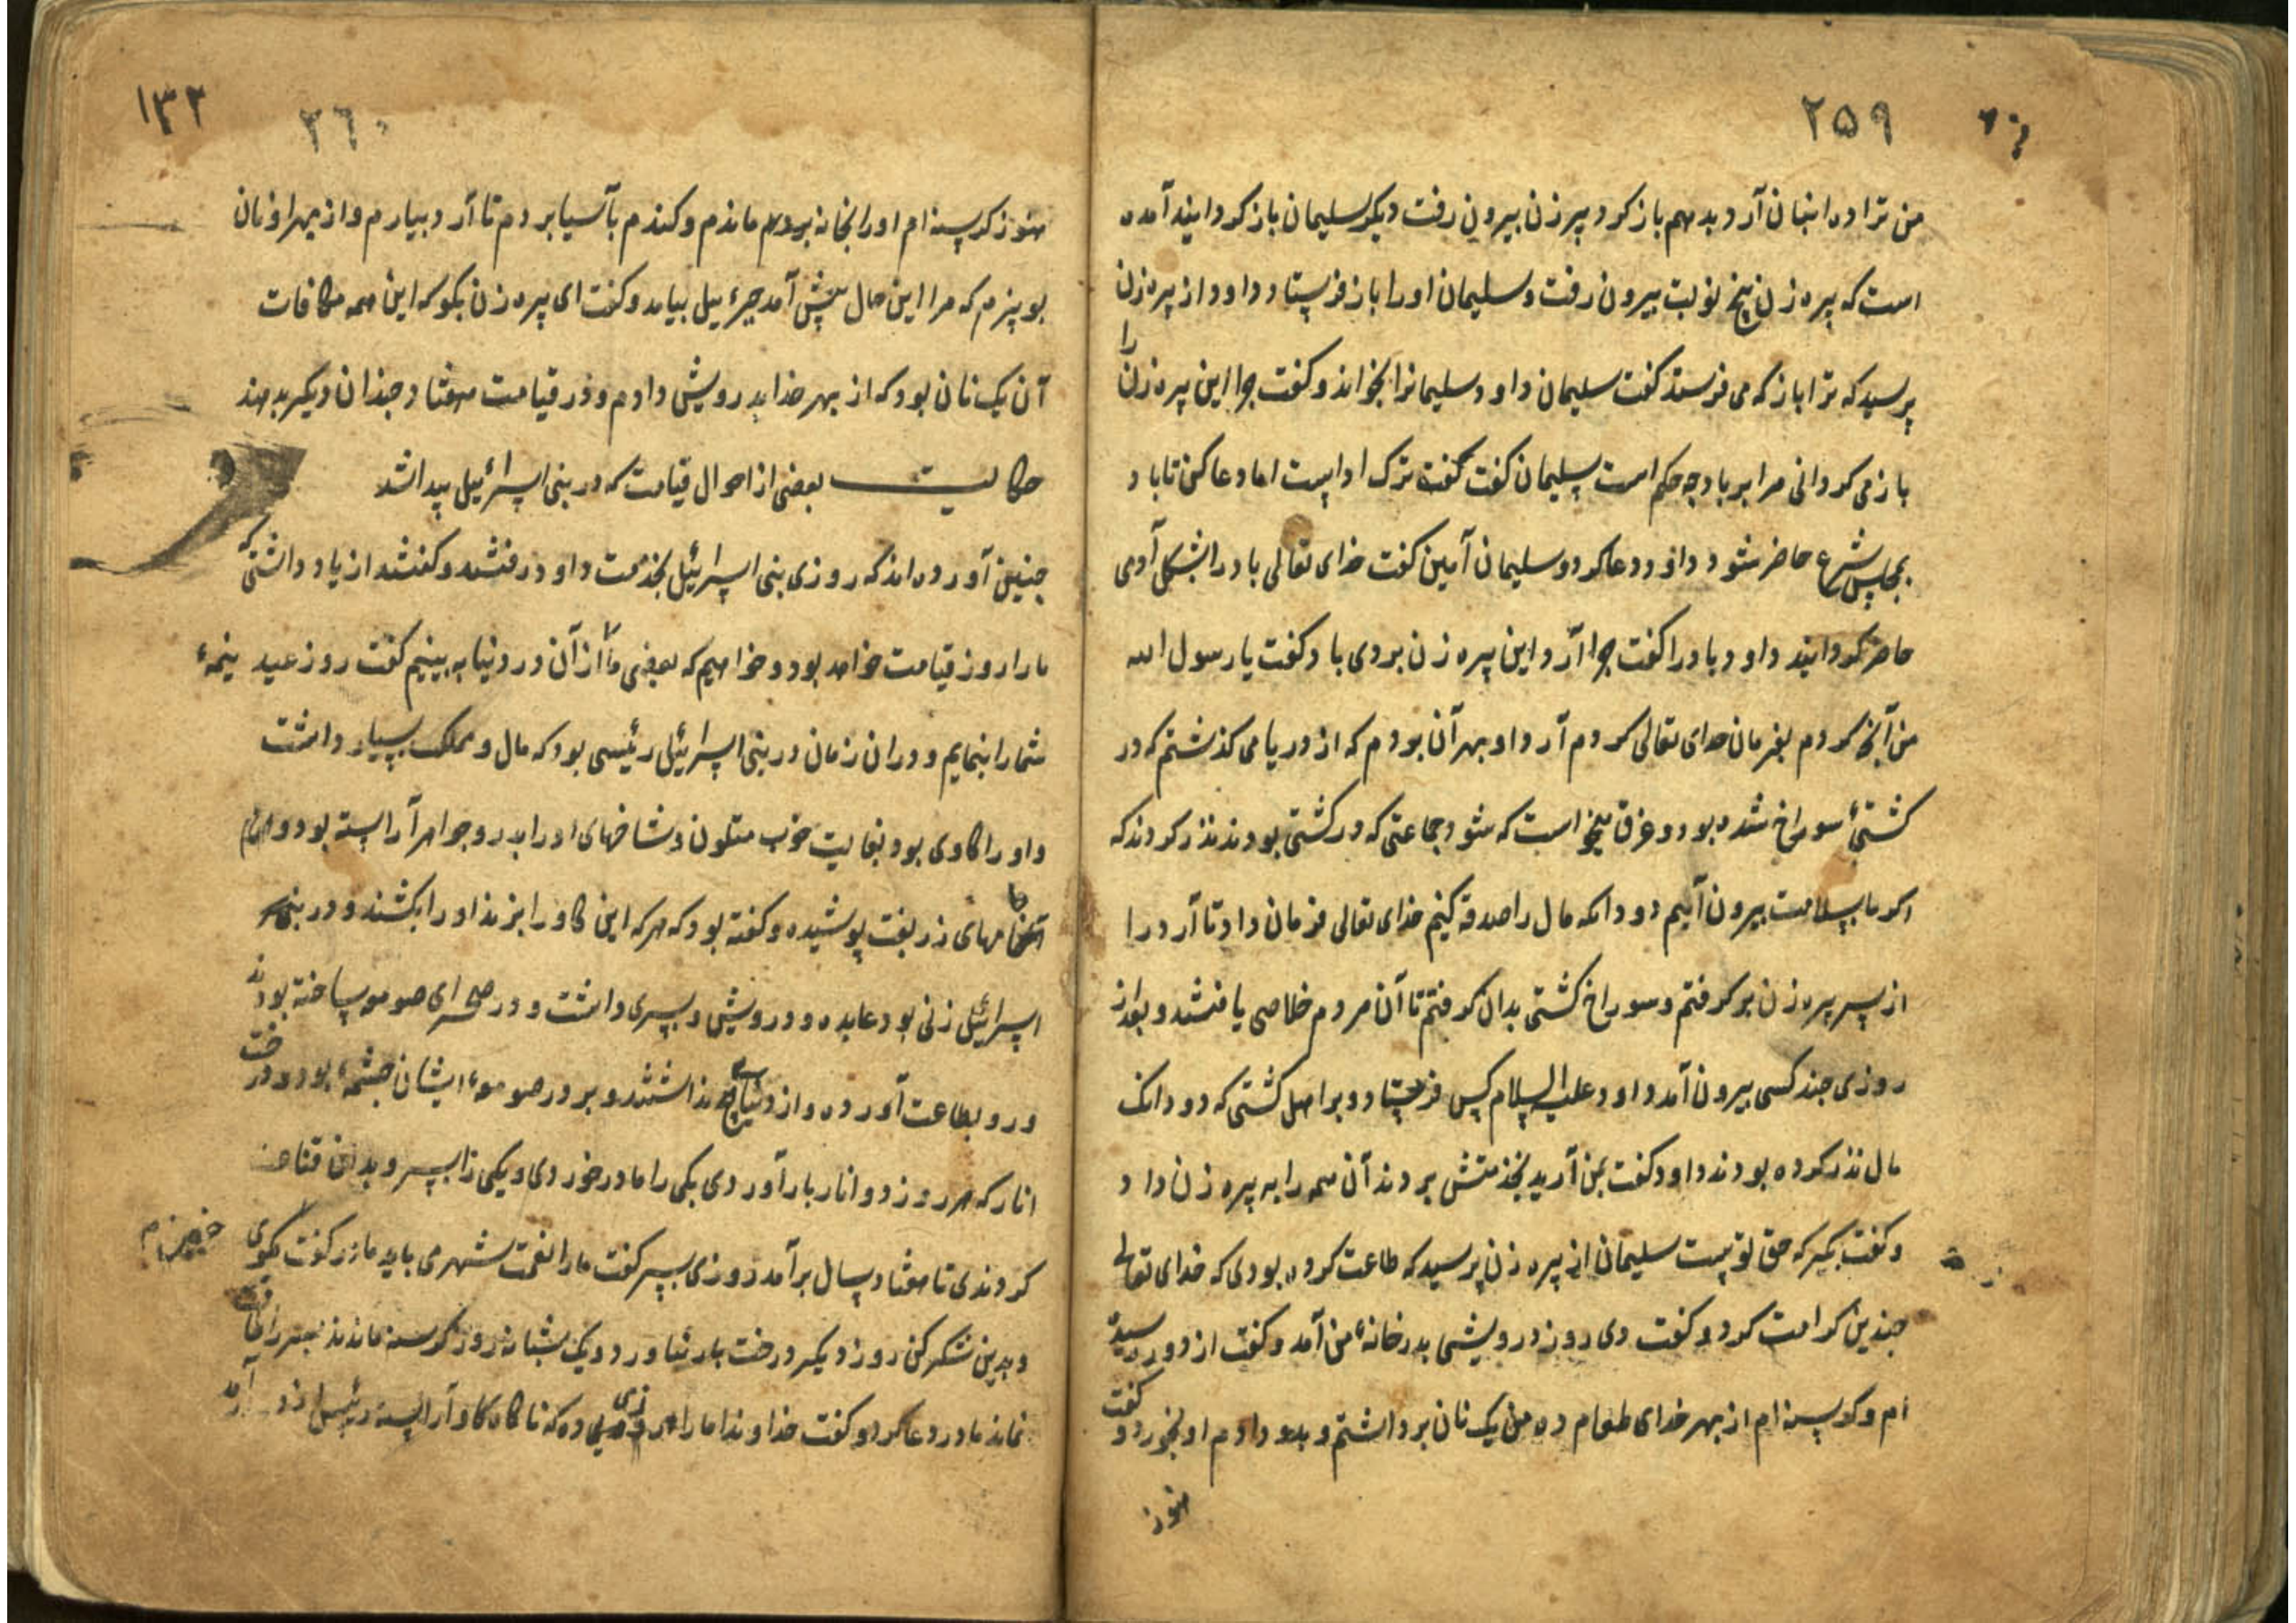 ۲۵۹
من ترا ده انبان آرد بدهم باز کرد و پیر زن بیرون رفت دیگر سلیمان باز کردانید آمده
است که پیره زن پنج نوبت بیرون رفت و سلیمان اورا باز فرستاد داود از پیره زن
پرسید که ترا باز که می فرستد کفت سلیمان داود سلیمانرا بخواند و کفت چرا این پیره زن را
باز می کردانی مرا بر باد چه حکم است سلیمان کفت ترک اد است اما دعا کن تا باد
بمجلس شرع حاضر شود داود دعا کرد و سلیمان آمین کفت خدای تعالی باد را بشکل آدمی
حاضر کردانید داود باد را کفت چرا آرد این پیره زن بردی باد کفت یا رسول الله
من آنچه کردم بفرمان خدای تعالی کردم آرد او بهر آن بردم که از دریا می کذشتم که در
کشتیٔ سوراخ شده بود و غرق میخواست که شود جماعتی که در کشتی بودند نذر کردند که
اکر ما بسلامت بیرون آییم دو دانکه مال را صدقه کنیم خدای تعالی فرمان داد تا آرد را
از سر پیره زن بر کرفتم و سوراخ کشتی بدان کرفتم تا آن مردم خلاصی یافتند و بعد از
روزی چند کسی بیرون آمد داود علیه السلام کس فرستاد و بر اهل کشتی که دو دانک
مال نذر کرده بودند داود کفت بمن آرید بخدمتش بردند آن همه را به پیره زن داد
و کفت بکیر که حق توست سلیمان از پیره زن پرسید که طاعت کرده بودی که خدای تعالی
چندین کرامت کرد و کفت دی روز درویشی بدر خانهٔ من آمد و کفت از دور رسیده
ام و کرسنه ام از بهر خدای طعام ده من یک نان برداشتم و بدو دادم او بخورد و کفت
هنوز
۱۳۲
۲۶۰
هنوز کرسنه ام اورا بخانه بردم ماندم و کندم بآسیا بردم تا آرد بیارم و از بهر او نان
بو پزم که مرا این حال پیش آمد جبرئیل بیامد و کفت ای پیره زن بکو که این همه مکافات
آن یک نان بود که از بهر خدا بدرویش دادم و در قیامت هفتاد چندان دیکر بدهند
حکایت بعضی از احوال قیامت که در بنی اسرائیل پیدا شد
چنین آورده اند که روزی بنی اسرائیل بخدمت داود رفتند و کفتند از یاد داشتی که
مارا روز قیامت خواهد بود و خواهیم که بعضی ما از آن در دنیا به بینیم کفت روز عید
شمارا بنمایم و دران زمان در بنی اسرائیل رئیسی بود که مال و ملک بسیار داشت
و اورا کاوی بود بغایت خوب متلون و شاخهای اورا بدر و جواهر آراسته بود و
جامهای زربفت پوشیده و کفته بود که هر که این کاو را بزند اورا بکشند و در بنی
اسرائیل زنی بود عابده و درویش و پسری داشت و در صحرای صومعه ساخته بودند
و رو بطاعت آورده و از دنیا هیچ نداشتند و بر در صومعهٔ ایشان چشمهٔ بود و درخت
انار که هر روز دو انار بار آوردی یکی را مادر خوردی و یکی را پسر و بدان قناعت
کردندی تا هفتاد سال برآمد روزی پسر کفت مارا نعمت شهر می باید مادر کفت مکوی
و بدین شکر کن روز دیکر درخت بار نیاورد و یک شبانه روز کرسنه ماندند پسر را طاقت
نماند مادر دعا کرد و کفت خداوندا مارا روزی ده که ناکاه کاو آراسته رئیس از در آمد